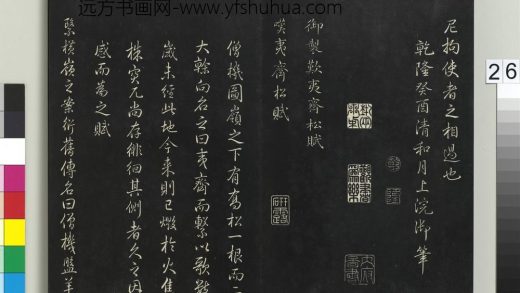 远方书画网-www.yfshuhua.com
尼拘使者之相遇也
乾隆癸酉清和月上浣御筆
御製歎夷齊松賦
嘆夷齊松賦
僧機圖嶺之下有喬松一根而二
大幹向名之曰夷齊而繫以歌
歲未經此地今來則已燬於火
株兀尚存徘徊其側者久之因
感而為之賦
繄橫嶺之案衍舊傳名曰僧機盤羊
26